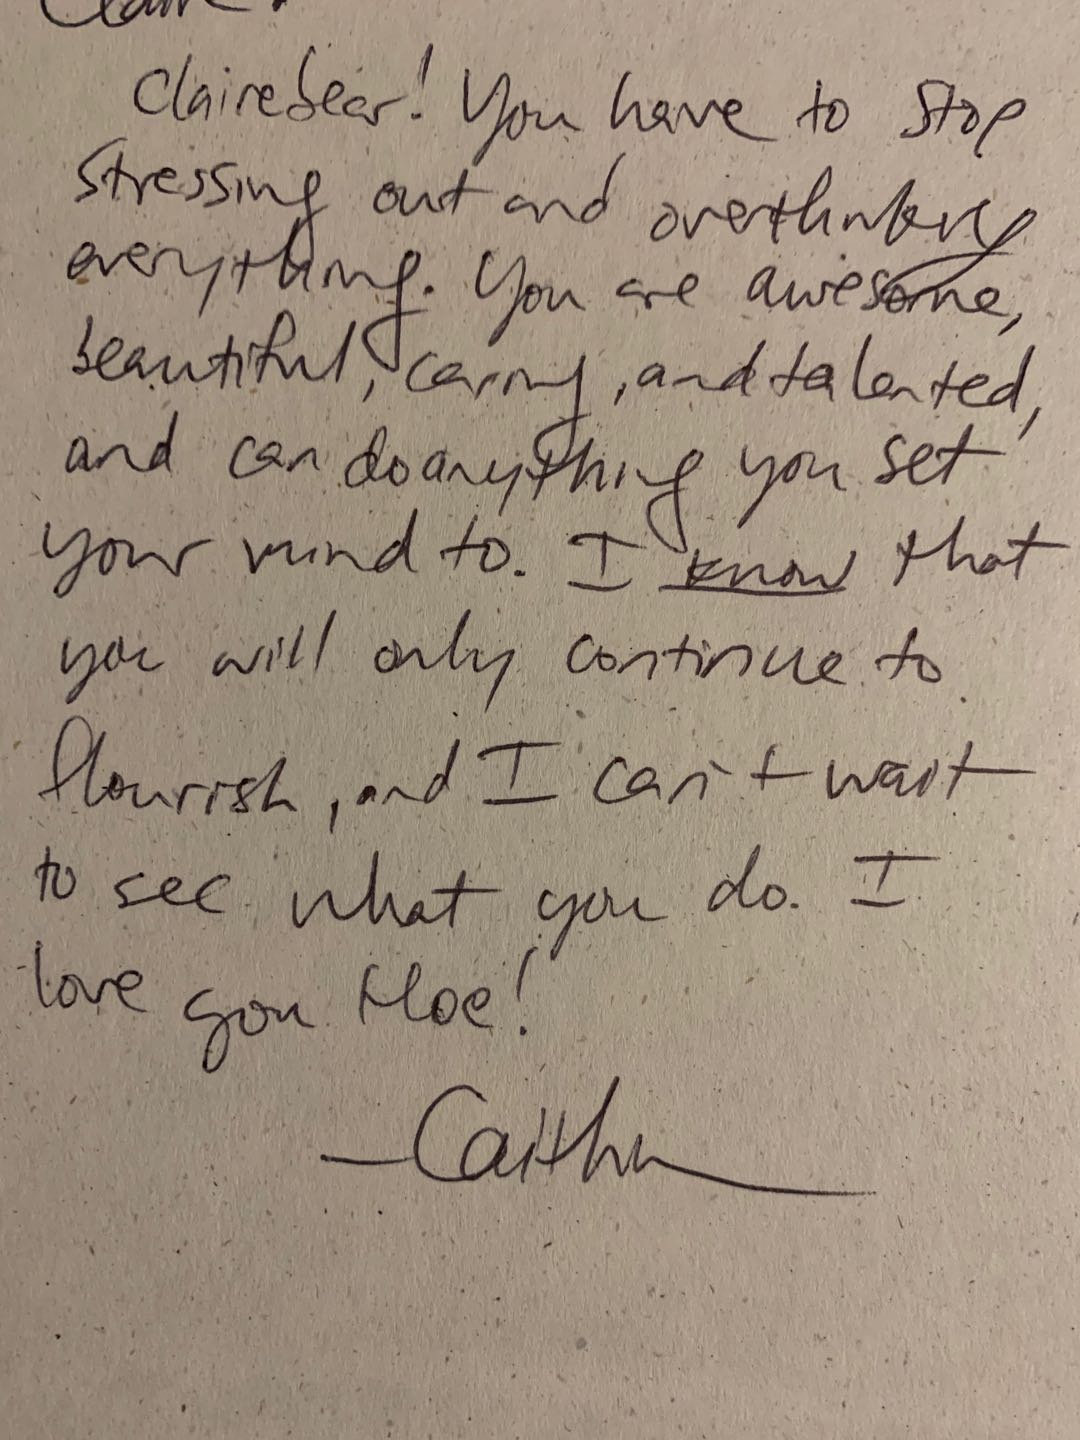 Claire,
Clairebear! You have to stop
stressing out and overthinking
everything. You are awesome,
beautiful, caring, and talented,
and can do anything you set
your mind to. I know that
you will only continue to
flourish, and I can't wait
to see what you do. I
love you Hoe!
—Caitlin